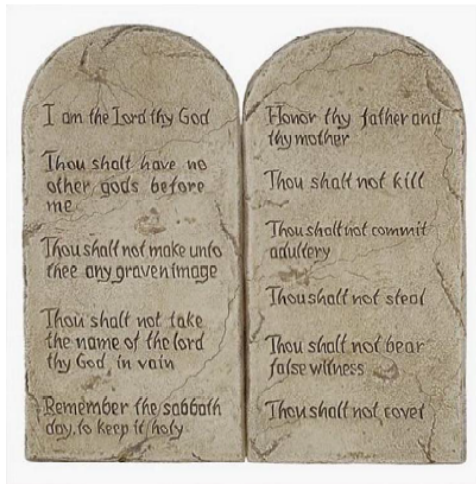 I am the Lord thy God
Thou shalt have no
other gods before
me
Thou shalt not make unto
thee any graven image
Thou shalt not take
the name of the lord
thy God, in vain
Remember the sabbath
day, to keep it holy
Honor thy father and
thy mother
Thou shalt not kill
Thou shalt not commit
adultery
Thou shalt not steal
Thou shall not bear
false witness
Thou shalt not covet